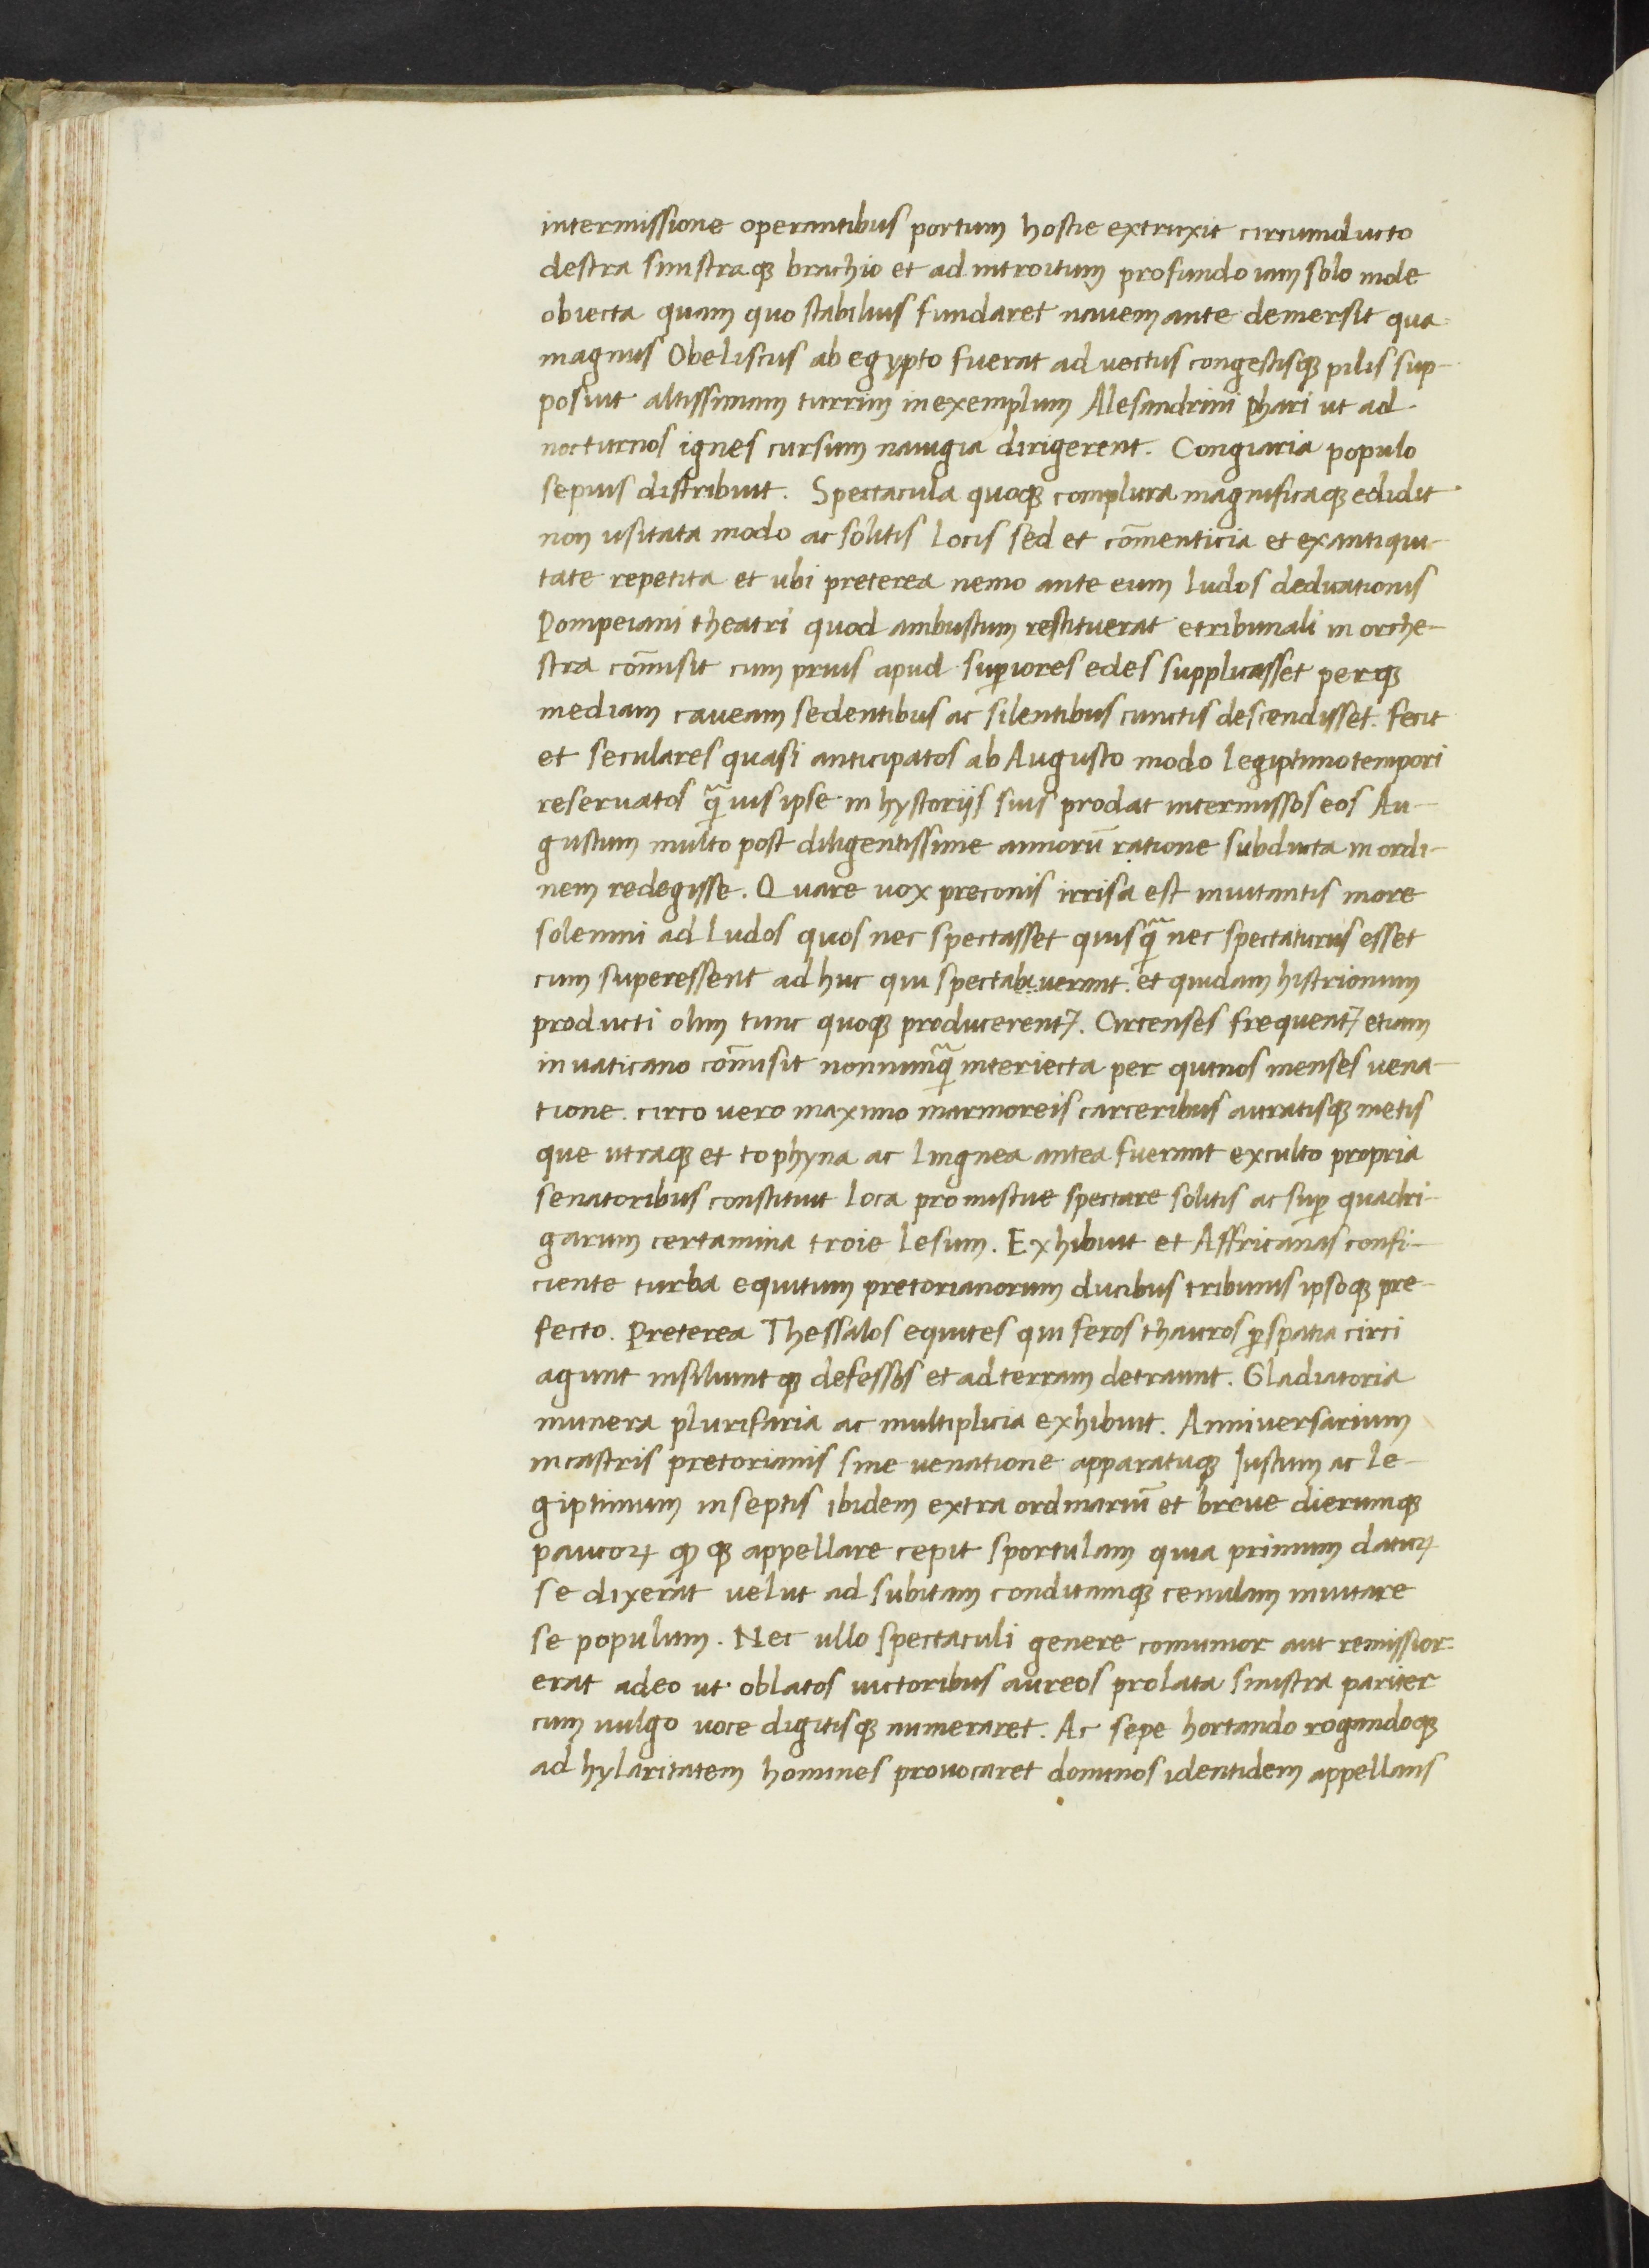 intermissione operantibus portum hostie extruxit circumducto
destra sinistraqꝫ brachio et ad introitum profundo iam solo mole
obiecta quam quo stabilius fundaret nauem ante demersit qua
magnus Obeliscus ab egypto fuerat aduectus congestisqꝫ pilis sup-
posuit altissimam turrim in exemplum Alesandrini phari ut ad
nocturnos ignes cursum nauigia dirigerent. Congiaria populo
sepius distribuit. Spectacula quoqꝫ complura magnificaqꝫ edidit
non usitata modo ac solitis locis sed et com̄enticia et ex antiqui-
tate repetita et ubi preterea nemo ante eum ludos deduationis
Pompeiani theatri quod ambustum restituerat e tribunali in orche-
stra com̄isit cum prius apud suꝑiores edes supplicasset perqꝫ
mediam caueam sedentibus ac silentibus cunctis descendisset. fecit
et seculares quasi anticipatos ab Augusto modo legiptimo tempori
reseruatos qᷓuis ipse in hystorijs suis prodat intermissos eos Au-
gustum multo post diligentissime annorū ratione subducta in ordi-
nem redegisse. Quare uox preconis irrisa est inuitantis more
solenni ad ludos quos nec spectasset quisqᷓ nec spectaturus esset
cum superessent adhuc qui spectabiuerant. et quidam histrionum
producti olim tunc quoqꝫ producerent᷑. Circenses frequent᷑ etiam
in uaticano com̄isit nonnunqᷓ interiecta per quinos menses uena-
tione. circo uero maximo marmoreis carceribus auratisqꝫ metis
que utraqꝫ et tophyna ac lingnea antea fuerant exculto propria
senatoribus constituit loca promiscue spectare solitis ac suꝑ quadri-
garum certamina troie lesum. Exhibuit et Affricanas confi-
ciente turba equitum pretorianorum ducibus tribunis ipsoqꝫ pre-
fecto. Preterea Thessalos equites qui feros thauros ꝑ spatia circi
agunt insiliuntqꝫ defessos et ad terram detraunt. Gladiatoria
munera plurifaria ac multiplicia exhibuit. Anniuersarium
in castris pretorianis sine uenatione apparatuqꝫ Iustum ac le-
giptimum in septis ibidem extra ordinariū et breue dierumqꝫ
paucoꝝ qͦ qꝫ appellare cepit sportulam quia primum datuꝝ
se dixerat uelut ad subitam conditamqꝫ cenulam inuitare
se populum. Nec ullo spectaculi genere comunior aut remissior
erat adeo ut oblatos uictoribus aureos prolata sinistra pariter
cum uulgo uoce digitisqꝫ numeraret. Ac sepe hortando rogandoqꝫ
ad hylaritatem homines prouocaret dominos identidem appellans